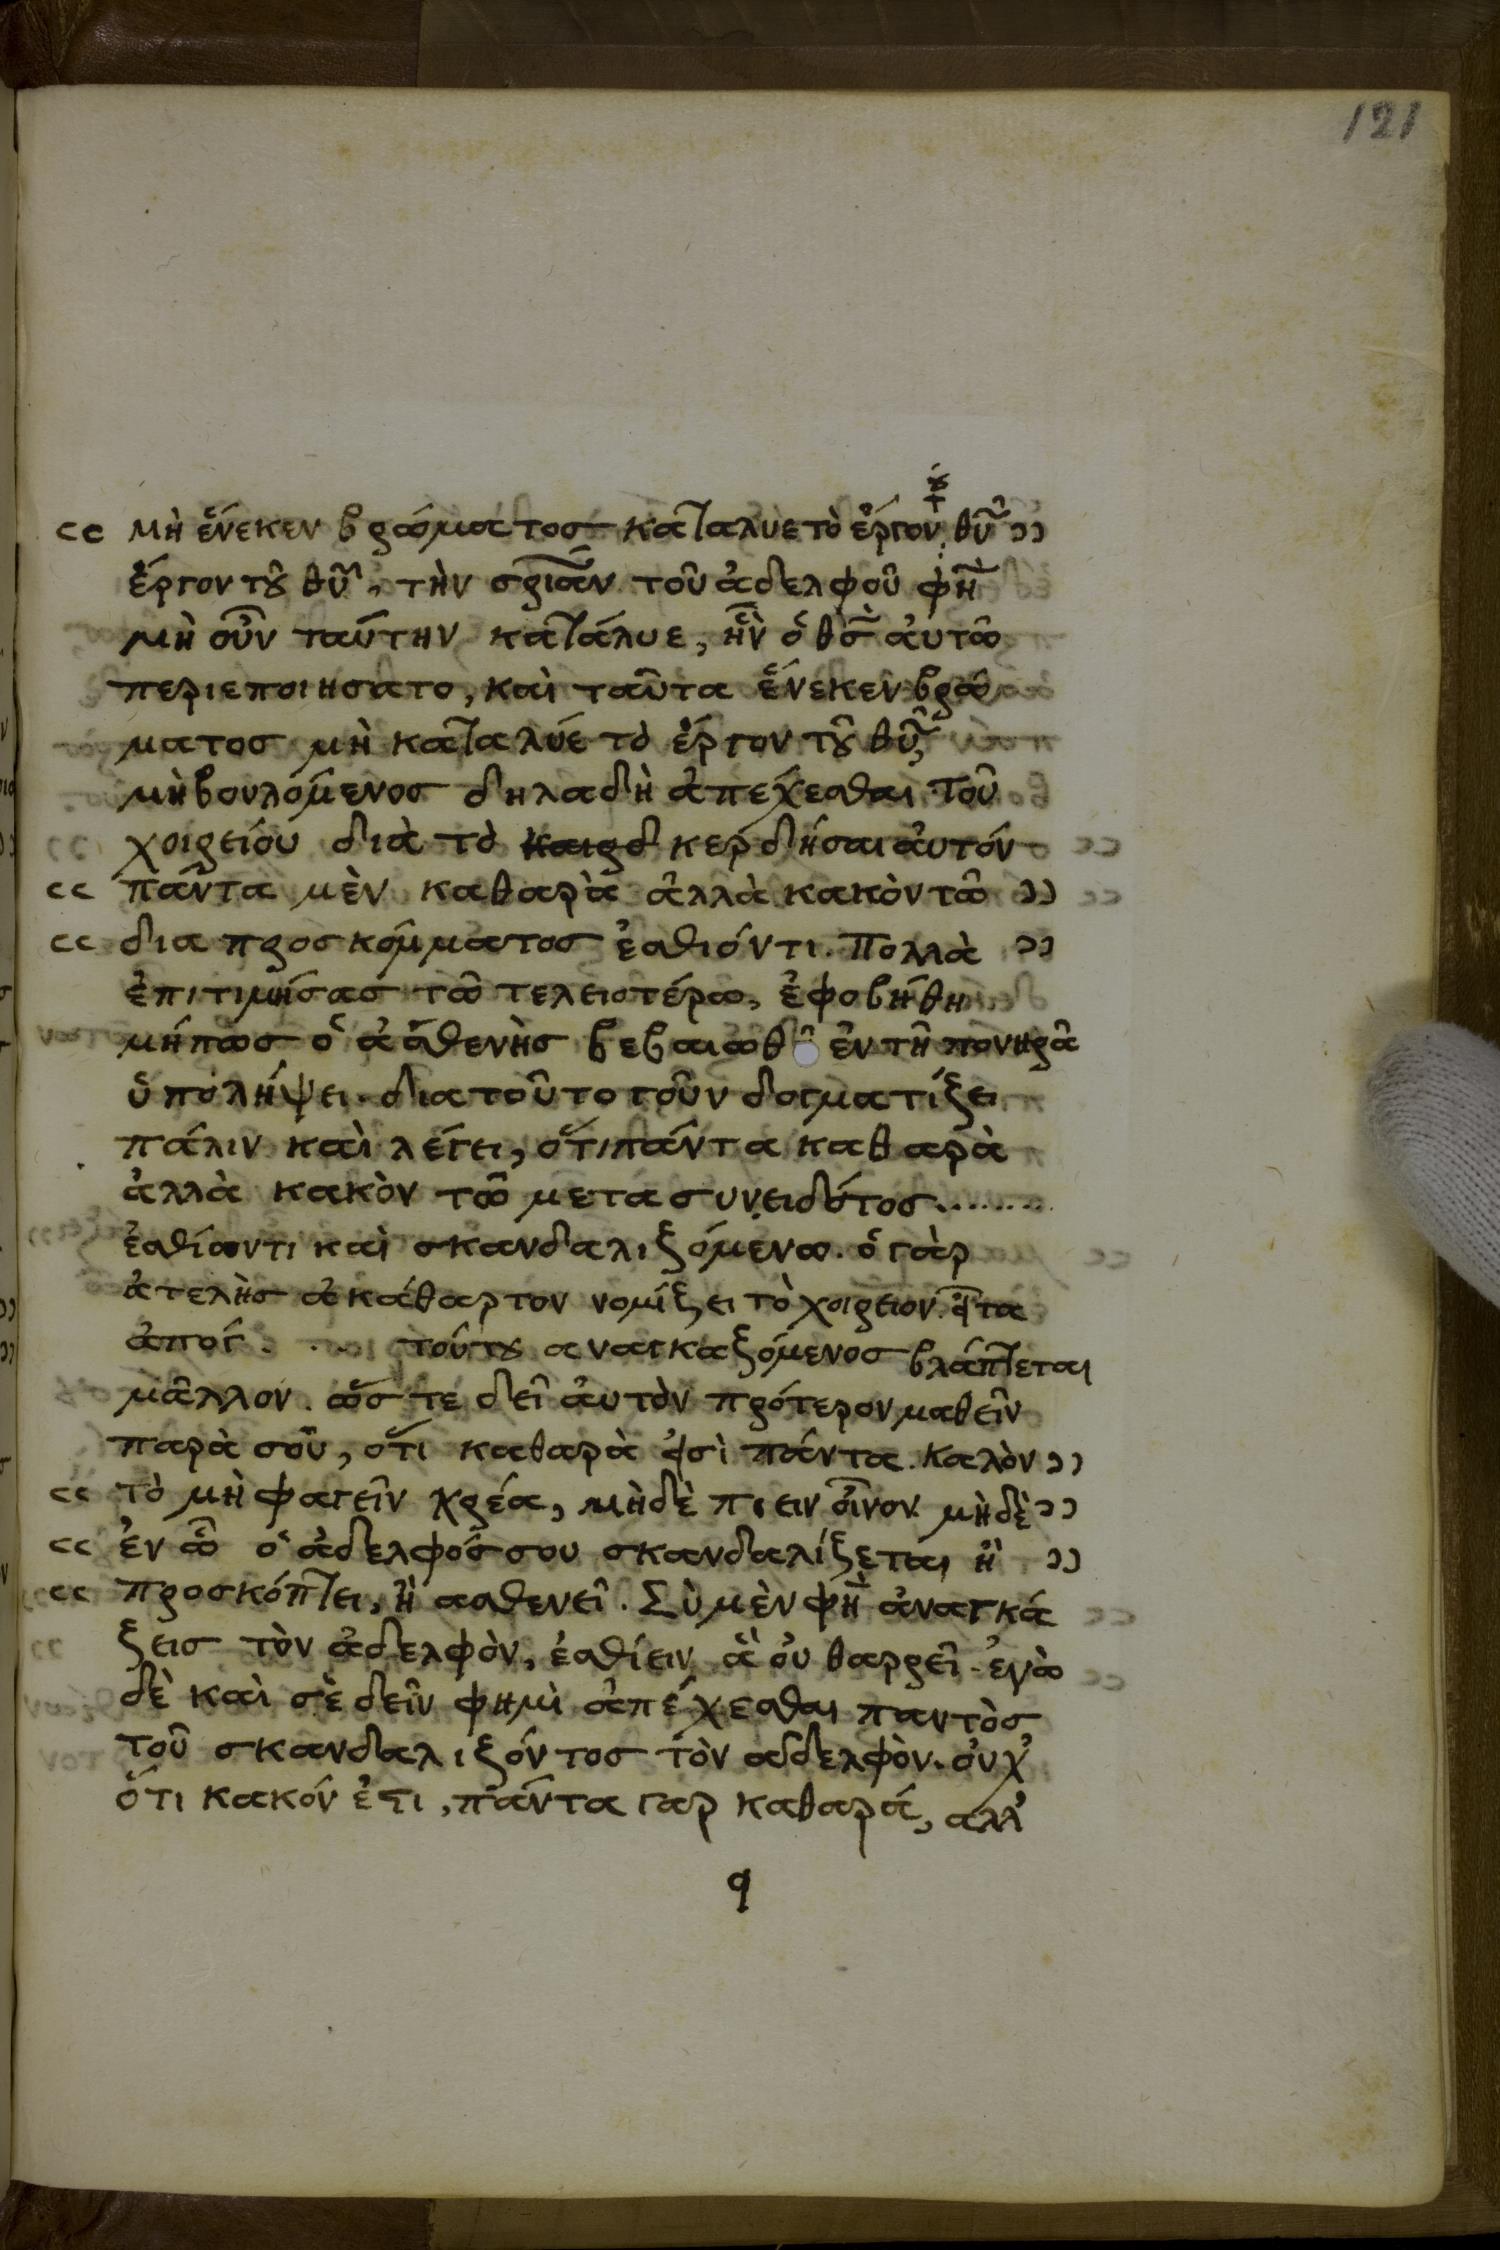 121
μὴ ἕνεκεν βρώματος κατάλυε τὸ ἔργον τȣ͂ θῦ
ἔργον τȣ͂ θῦ, τὴν σρίαν τοῦ ἀδελφοῦ φη
μὴ οὖν ταύτην κατάλυε, ἣν ὁ θσ αὐτῶ
περιεποιησατο, καὶ ταῦτα ἕνεκεν βρώ
ματος μὴ καταλύε τὸ ἔργον τȣ͂ θῦ,
μὴ βουλόμενος δηλαδὴ ἀπέχεσθαι τοῦ
χοιρείου διὰ τὸ κερδῆσαι αὐτόν
πάντα μὲν καθαρὰ ἀλλὰ κακὸν τῶ
δια προσκόμματος ἐσθίοντι. Πολλὰ
ἐπιτιμήσας τῶ τελειοτέρω, ἐφοβήθη
μήπως ὁ ἀσθενὴς βεβαιωθῆ ἐν τῆ πονηρᾶ
ὑπολήψει. διατοῦτο γοῦν δογματίζει
πάλιν καὶ λέγει, ὅτι πάντα καθαρὰ
ἀλλὰ κακὸν τῶ μετα συνειδότος........
ἐσθίωντι καὶ σκανδαλιζόμενω. ὁ γὰρ
ἀτελὴς ἀκάθαρτον νομίζει τὸ χοιρειον. εἶτα
ἀπογ. . .. τούτȣ αναγκαζόμενος βλάπτεται
μᾶλλον. ὥστε δεῖ αὐτὸν πρότερον μαθεῖν
παρὰ σοῦ, ὅτι καθαρὰ εἰσὶ πάντα. καλὸν
τὸ μὴ φαγεῖν κρέα, μὴδὲ πιειν οἶνον. μὴδὲ
ἐν ὧ ὁ ἀδελφός σου σκανδαλίζεται ἢ
προσκόπτει, ἢ ασθενεῖ. Σὺ μὲν φη ἀναγκά
ζεις τὸν ἀδελφὸν, ἐσθίειν ἃ οὐ θαρρεῖ. ἐγὼ
δὲ καὶ σὲ δεῖν φημὶ ἀπέχεσθαι παντὸς
τοῦ σκανδαλιζόντος τὸν αδδελφὸν. οὐχ
ὅτι κακόν ἐϛι, πάντα γαρ καθαρά, αλλ
q